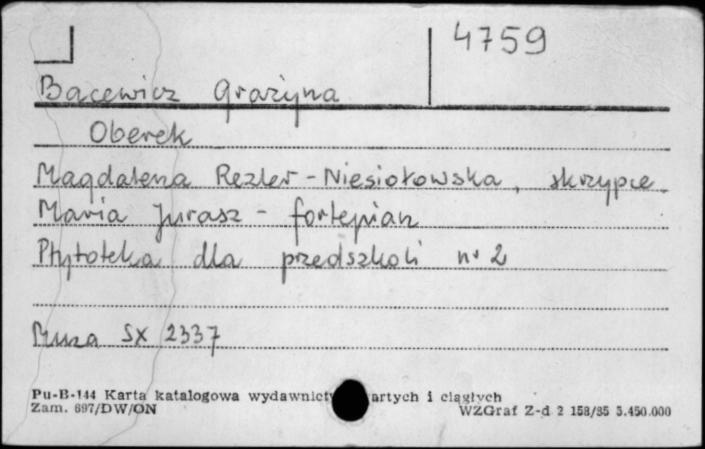 4759
Bacewicz Grażyna
Oberek
Magdalena Rezler-Niesiołowska, skrzypce
Maria Jurasz - fortepian
Płytoteka dla przedszkoli nr 2
Muza SX 2337
Pu-B-144 Karta katalogowa artych i ciągłych
Zam. 697/DW/ON WZGraf Z-d 2 158/85 5.450.000